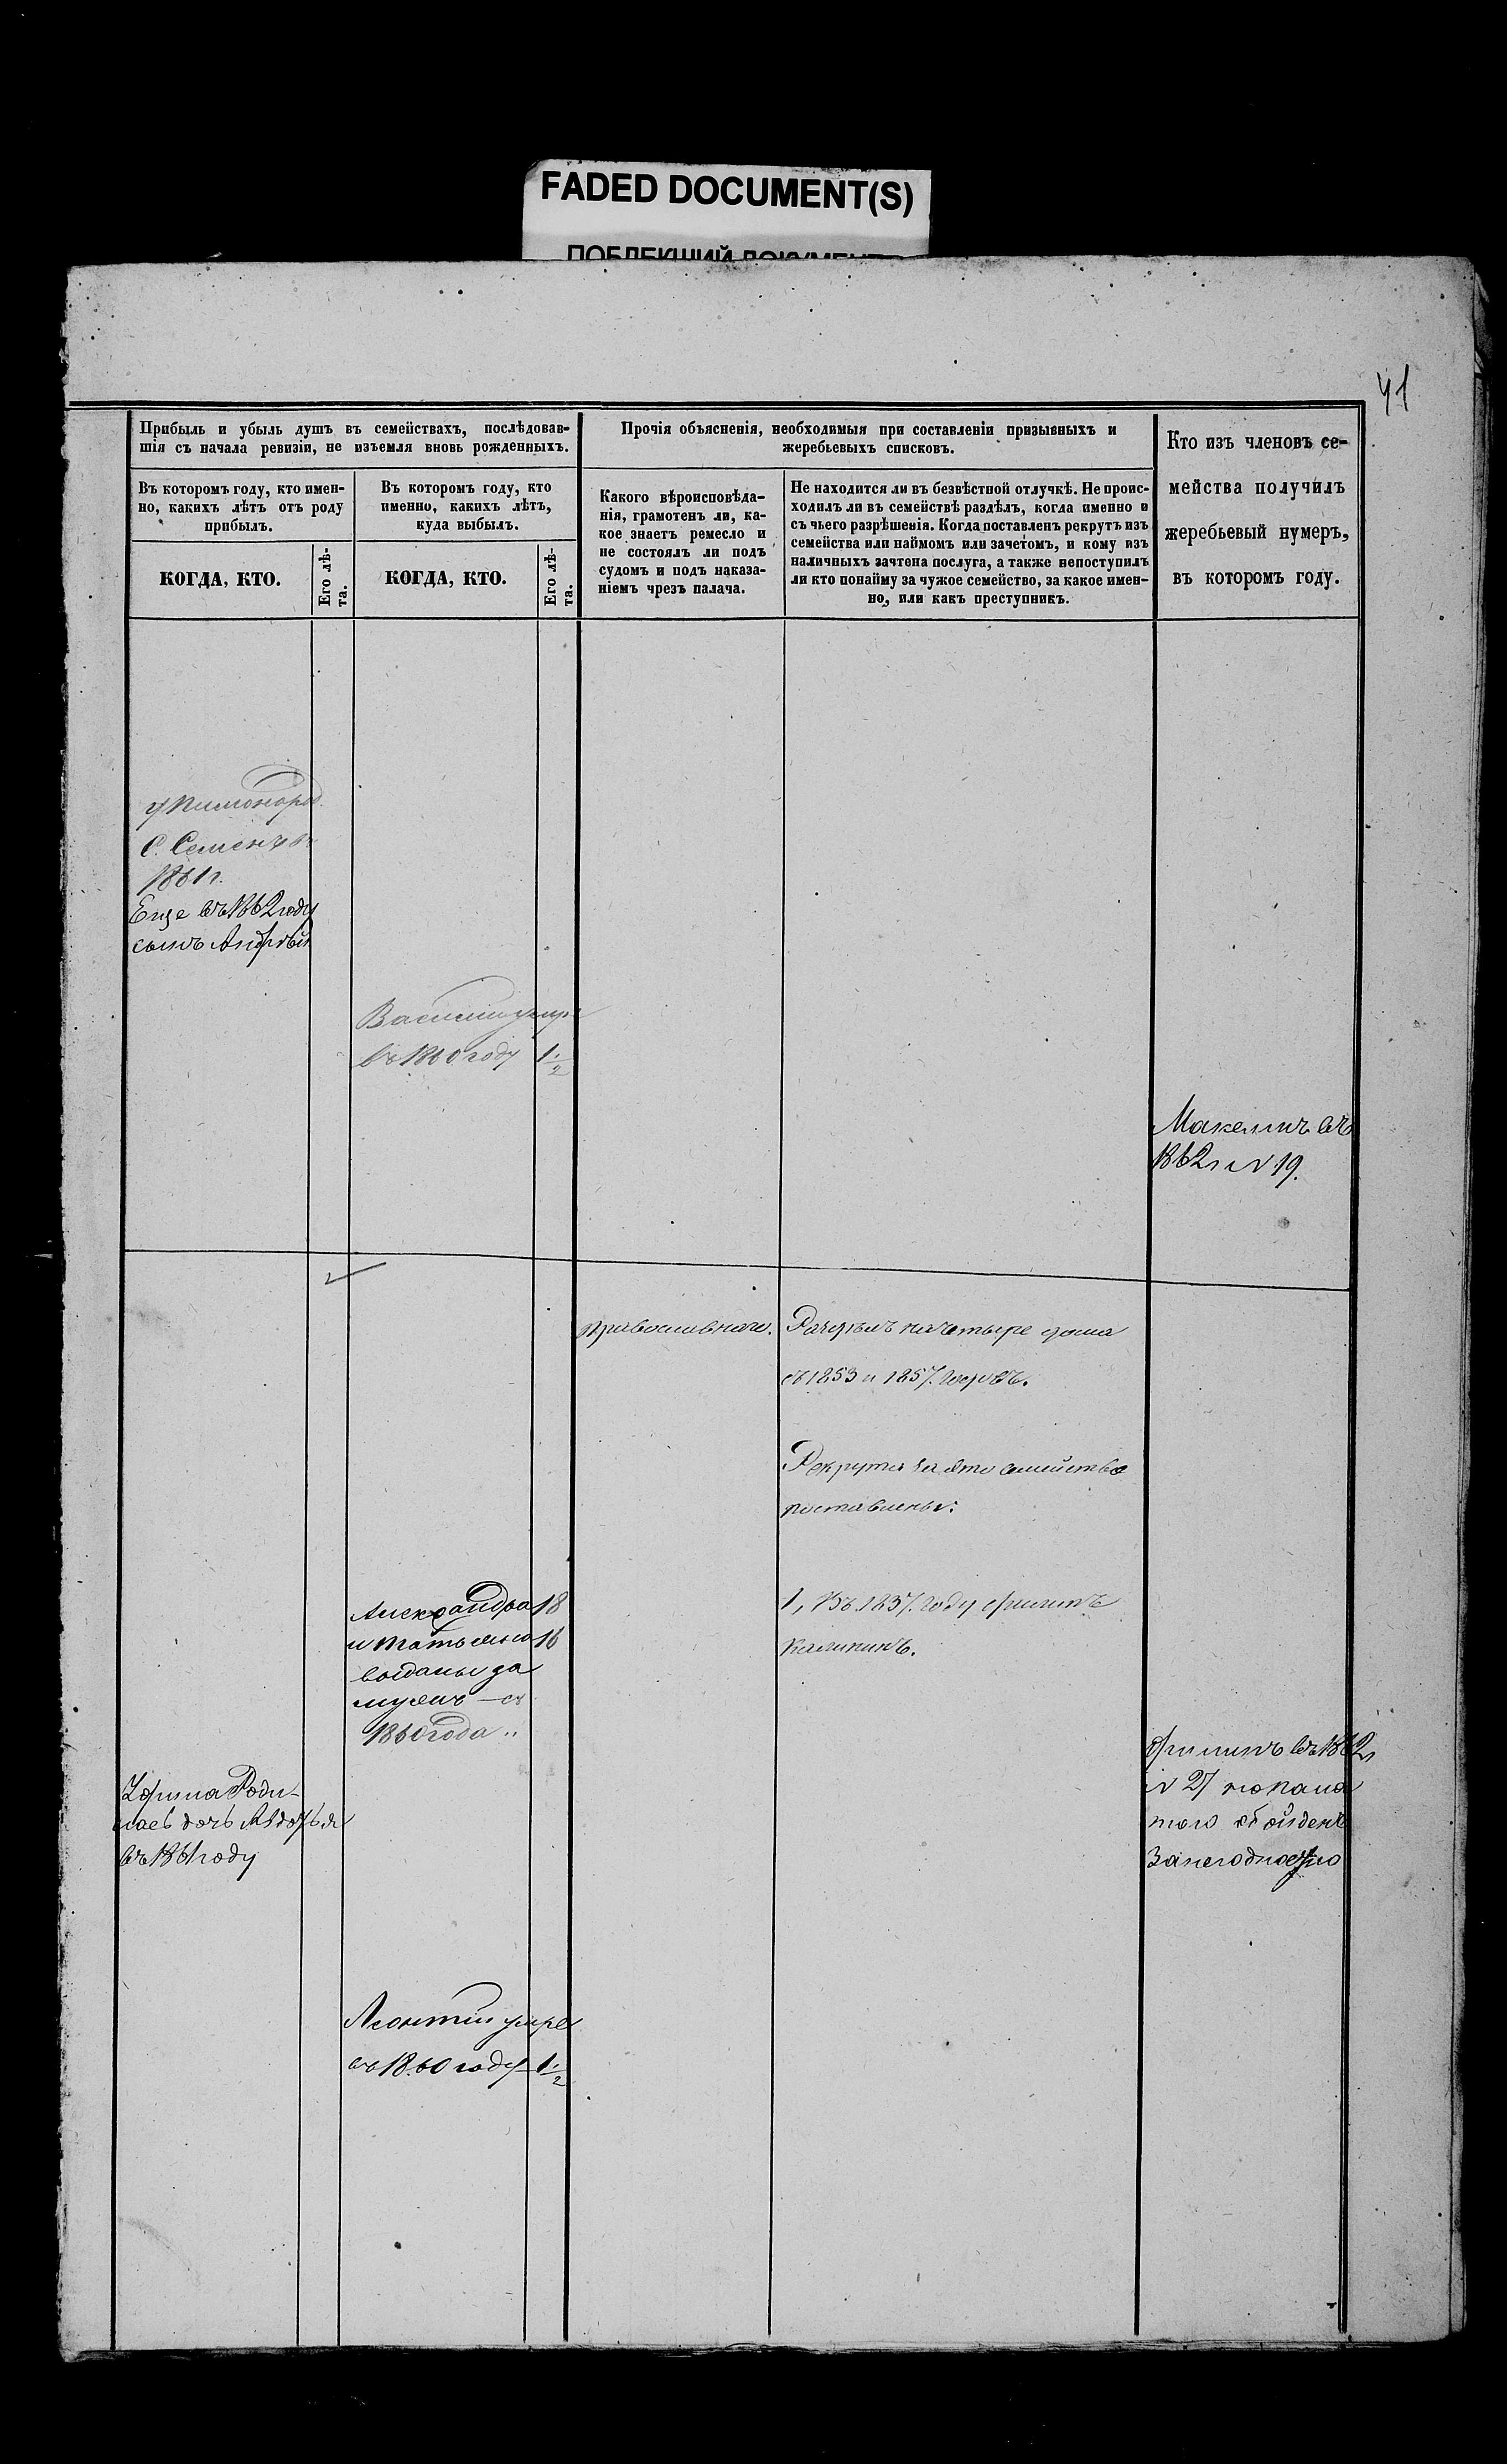 FADED DOCUMENT(S)
ПОБЛЕКШИЙ ДОКУМЕНТ
41
Прибыль и убыль душъ въ семействахъ, послѣдовав-
шія съ начала ревизіи, не изъемля вновь рожденныхъ.
Въ которомъ году, кто имен-
но, какихъ лѣтъ отъ роду
прибылъ.
КОГДА, КТО.
Его лѣ-
та.
Въ которомъ году, кто
именно, какихъ лѣтъ,
куда выбылъ.
КОГДА, КТО.
Его лѣ-
та.
Прочія объясненія, необходимыя при составленіи призывныхъ и
жеребьевыхъ списковъ.
Какого вѣроисповѣда-
нія, грамотенъ ли, ка-
кое знаетъ ремесло и
не состоялъ ли подъ
судомъ и подъ наказа-
ніемъ чрезъ палача.
Не находится ли въ безвѣстной отлучкѣ. Не проис-
ходилъ ли въ семействѣ раздѣлъ, когда именно и
съ чьего разрѣшенія. Когда поставленъ рекрутъ изъ
семейства или наймомъ или зачетомъ, и кому изъ
наличныхъ зачтена послуга, а также непоступилъ
ли кто понайму за чужое семейство, за какое имен-
но, или какъ преступникъ.
Кто изъ членовъ се-
мейства получилъ
жеребьевый нумеръ,
въ которомъ году.
С. Семенъ въ
1861 г.
Еще въ 1862 году
сынъ Андрѣй
Василий умре
въ 1860 году 1 1/2
въ
1862 г N 19.
православнаго.
Раздѣлъ начетыре дома
съ 1853 и 1857. годовъ.
Рекрута за это семейство
поставлены:
1, Въ 1837. году Филипъ
Калининъ.
Александра 18
и Татьяна 16
выданы за
мужъ — съ
1860 года
Филипъ въ 1862 г
N 27
обойденъ
Занегодностію
дочь Авдотья
въ 1861 году
Леонтий умре
въ 1860 году 1 1/2